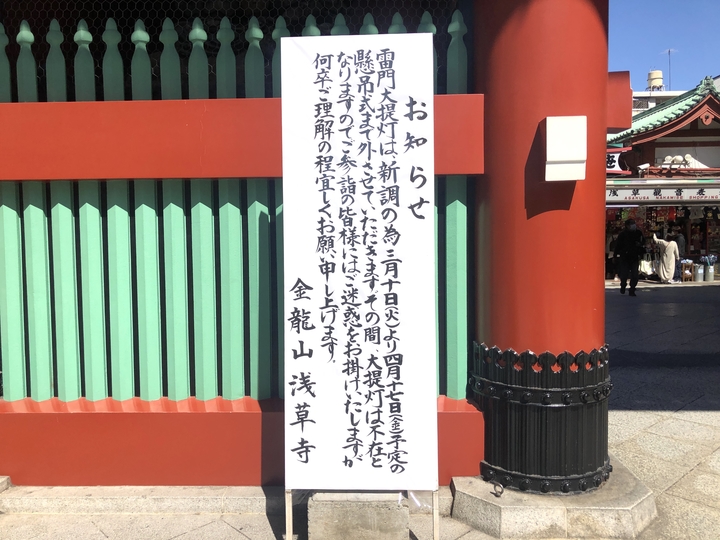 お知らせ
雷門大提灯は、新調の為三月十日(火)より四月十七日(金)予定の
懸吊式まで外させていただきます。その間、大提灯は不在と
なりますのでご参詣の皆様にはご迷惑をお掛けいたしますが
何卒ご理解の程宜しくお願い申し上げます。
金龍山浅草寺
浅草観音
ASAKUSA NAKAMISE SHOPPING